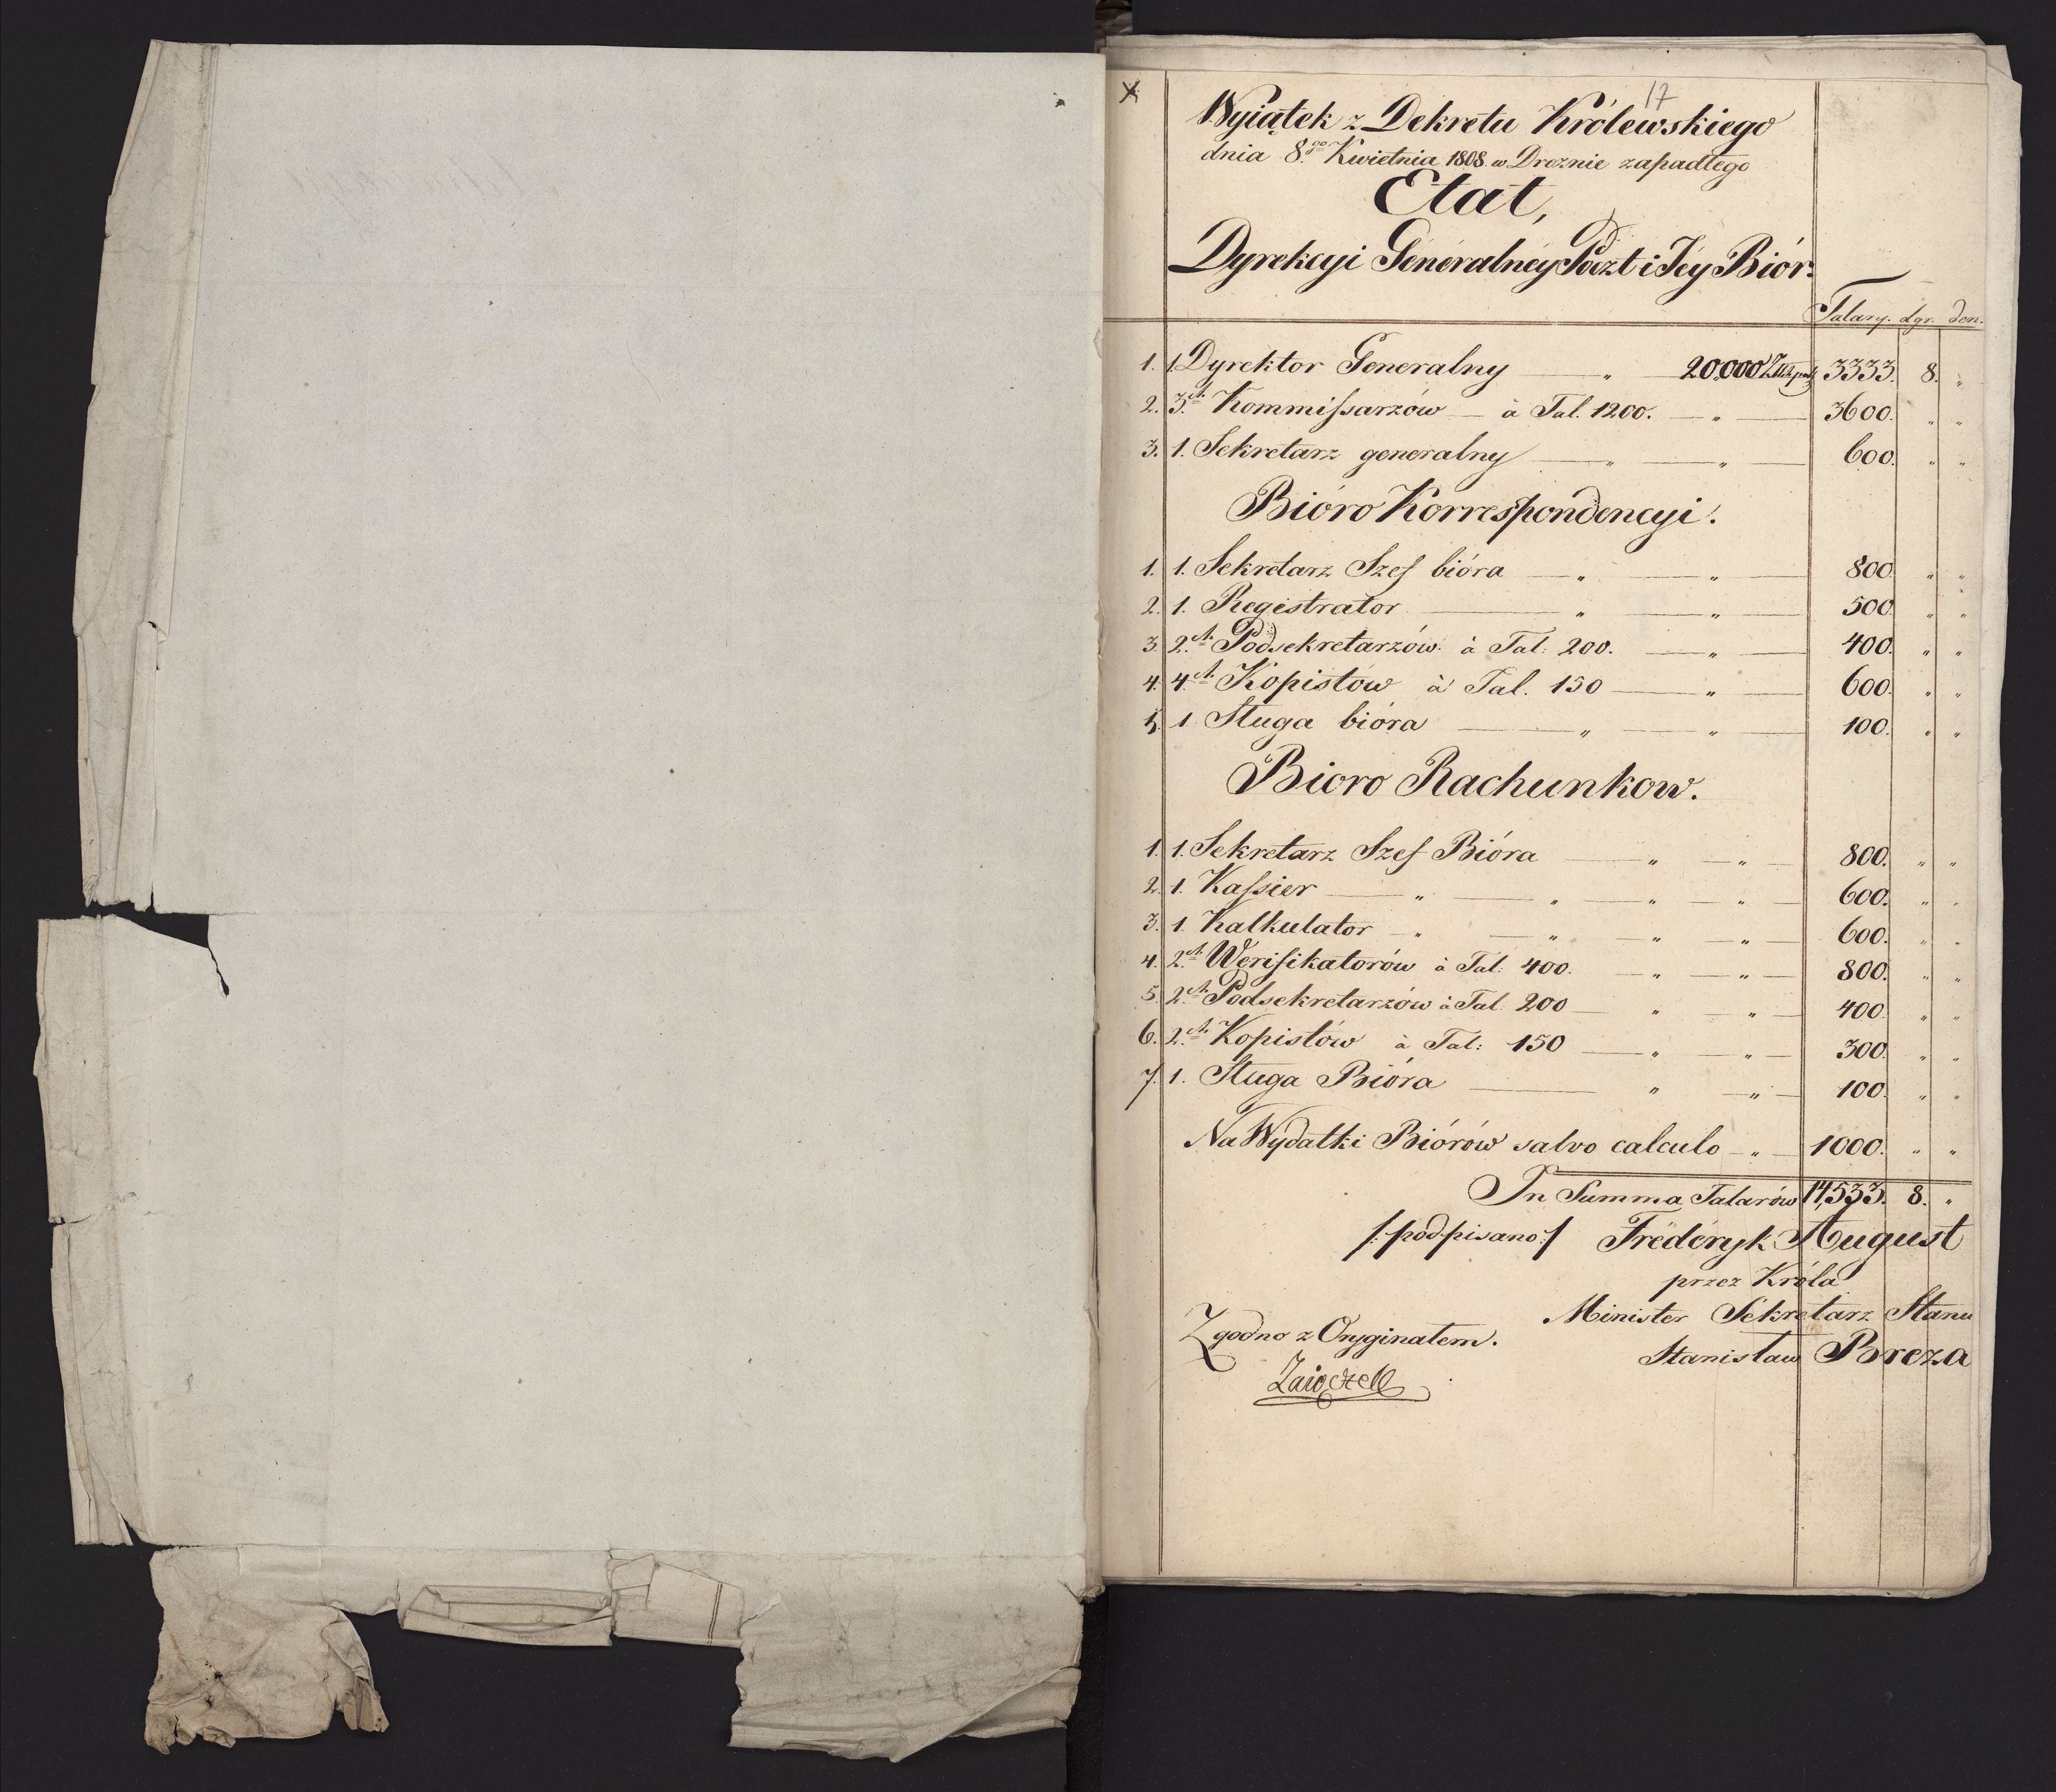 17
Wyiątek z Dekretu Królewskiego
dnia 8.go Kwietnia 1808 w Dreznie zapadłego
Etat,
Dyrekcyi Generalnéy Poczt i Jéy Biór.
Talary. dgr. den.
1. 1. Dyrektor Generalny — " — 20,000 Złłpol. 3333. 8. "
2. 3.ch Kommissarzów — à Tal. 1200. — " — 3600. " "
3. 1. Sekretarz generalny — " — " — 600. " "
Bióro Korrespondencyi.
1. 1. Sekretarz Szef bióra — " — " — 800. " "
2. 1. Registrator — " — " — 500. " "
3. 2.ch Podsekretarzów à Tal: 200. — " — 400. " "
4. 4.ch Kopistów à Tal. 150 — " — 600. " "
5. 1 Sługa bióra — " — " — 100. " "
Bioro Rachunkow.
1. 1. Sekretarz Szef Bióra — " — " — 800. " "
2. 1. Kassier — " — " — " — " — 600. " "
3. 1. Kalkulator — " — " — " — " — 600. " "
4. 2.ch Weryfikatorów à Tal: 400. — " — " — 800. " "
5. 2.ch Podsekretarzów à Tal. 200 — " — " — 400. " "
6. 2.ch Kopistów à Tal: 150 — " — " — 300. " "
7. 1. Sługa Bióra — " — " — 100. " "
Na Wydatki Biórów salvo calculo — " — 1000. " "
In Summa Talarów 14,533. 8. "
/: podpisano :/ Fréderyk August
przez Króla
Minister Sekretarz Stanu
Stanisław Breza
Zgodno z Oryginałem.
Zaiączek